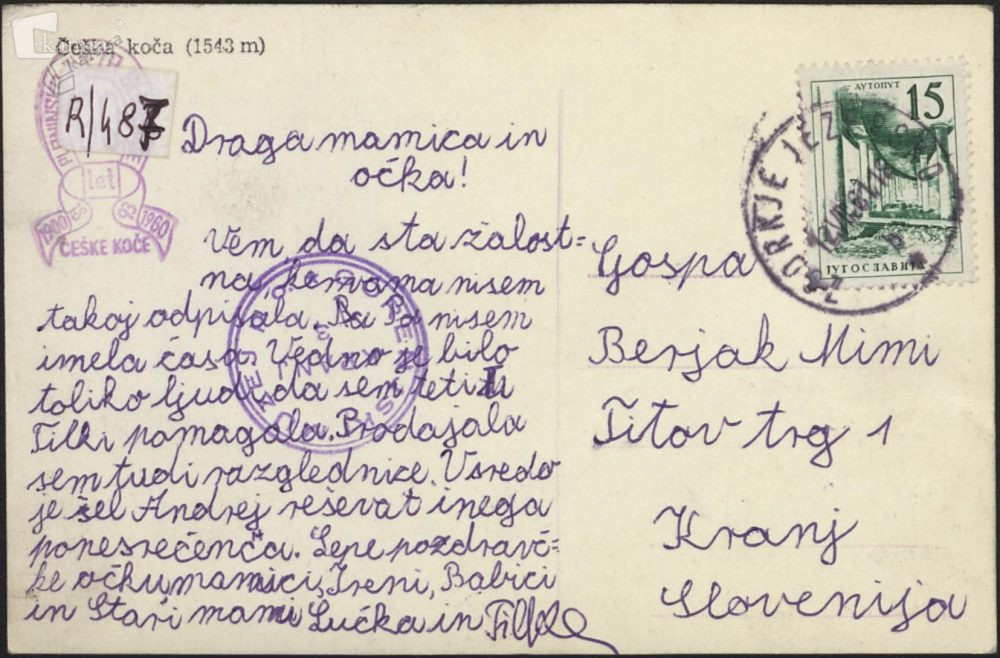 Češka koča (1543 m)
R/487
let
1900
1960
ČEŠKE KOČE
Draga mamica in
očka!
Vem, da sta žalost=
na, ker vama nisem
takoj odpisala. Pa sa nisem
imela časa. Vedno je bilo
toliko ljudi, da sem teti
Tilki pomagala. Prodajala
sem tudi razglednice. V sredo
je šel Andrej reševat inega
ponesrečenča. Lepe pozdravč=
ke očku, mamici, Ireni, Babici
in Stari mami Lučka in
АУТОПУТ
15
ЈУГОСЛАВИЈА
ZGORNJE JEZERSKO
Gospa
Berjak Mimi
Titov trg 1
Kranj
Slovenija